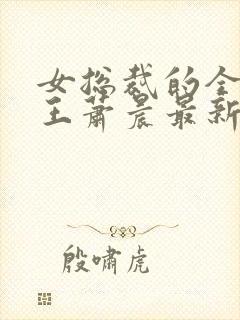 女总裁的全
王萧晨最新
殷啸虎